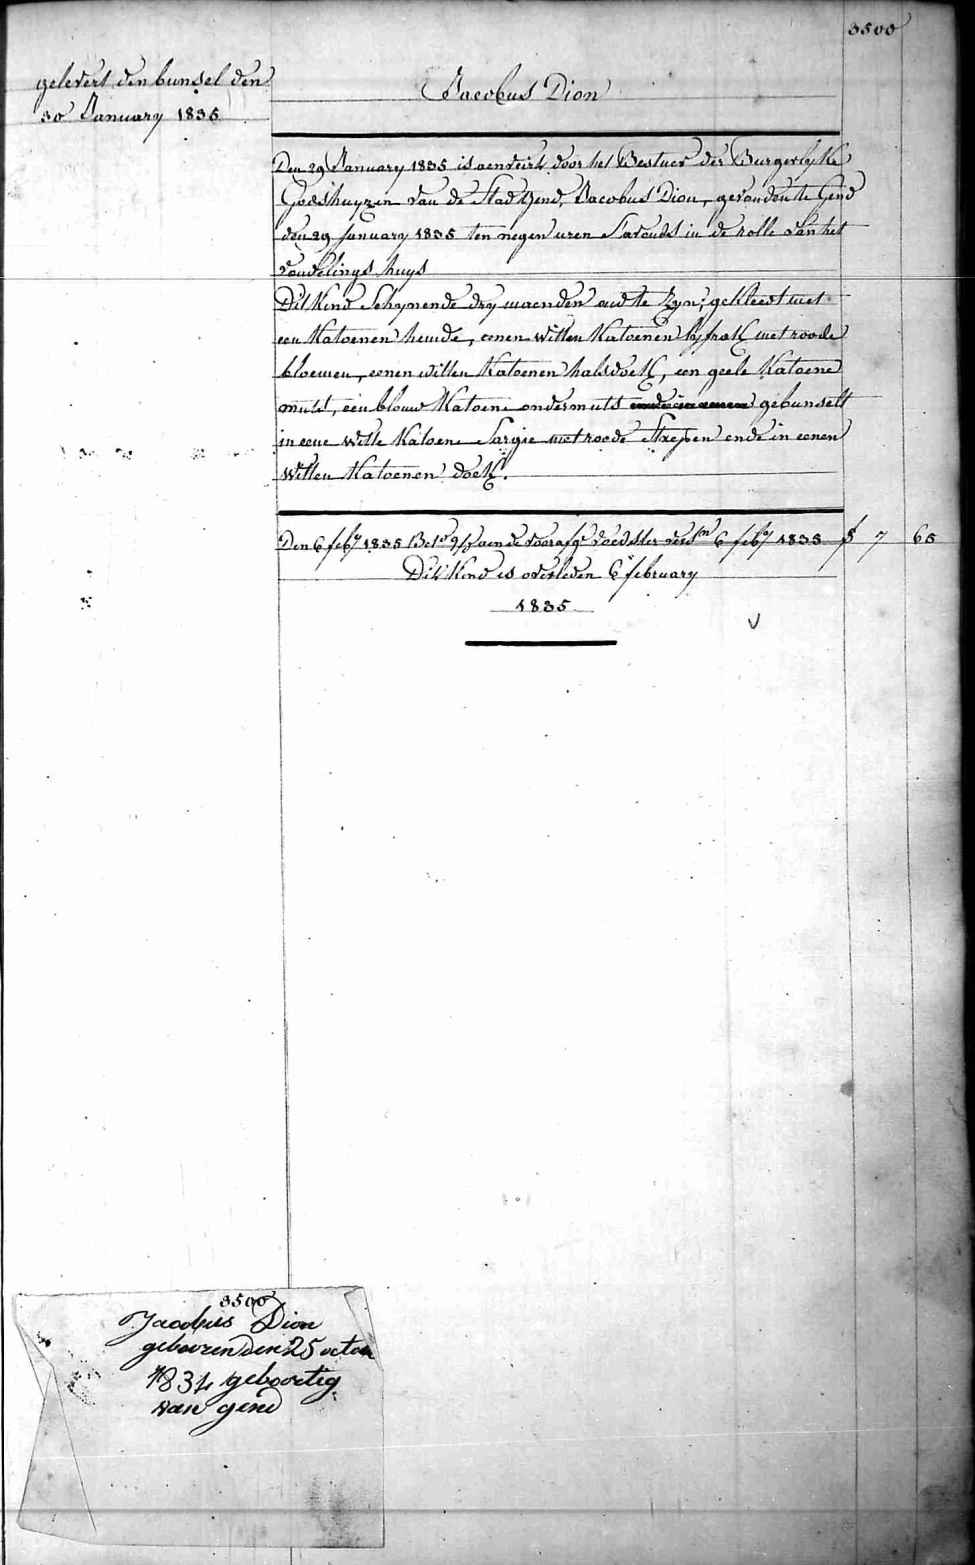 3500
gelevert den bunsel den
30 January 1835
Jacobus Dion
Den 29 January 1835 is aenveirt door het Bestuer der Burgerlyke
Godshuyzen van de Stad Gend, Jacobus Dion, gevonden te Gend
den 29 January 1835 ten negen uren S'avonds in de rolle van het
vondelings huys
Dit Kind Schynende dry maenden oud te Zyn; gekleed met
een Katoenen hemde, eenen witten Katoenen lyfrok met roode
bloemen, eenen witten Katoenen halsdoek, een geele Katoene
muts, een blauw Katoene ondermuts gebunselt
in eene Witte Katoene Sargie met roode Strepen ende in eenen
Witten Katoenen doek.
Den 6 feby 1835 aen de voedster 6 feby 1835 7 65
Dit Kind is overleden 6 february
1835
3500
Jacobus Dion
gebooren den 25 octon
1834 geboortig
van gend